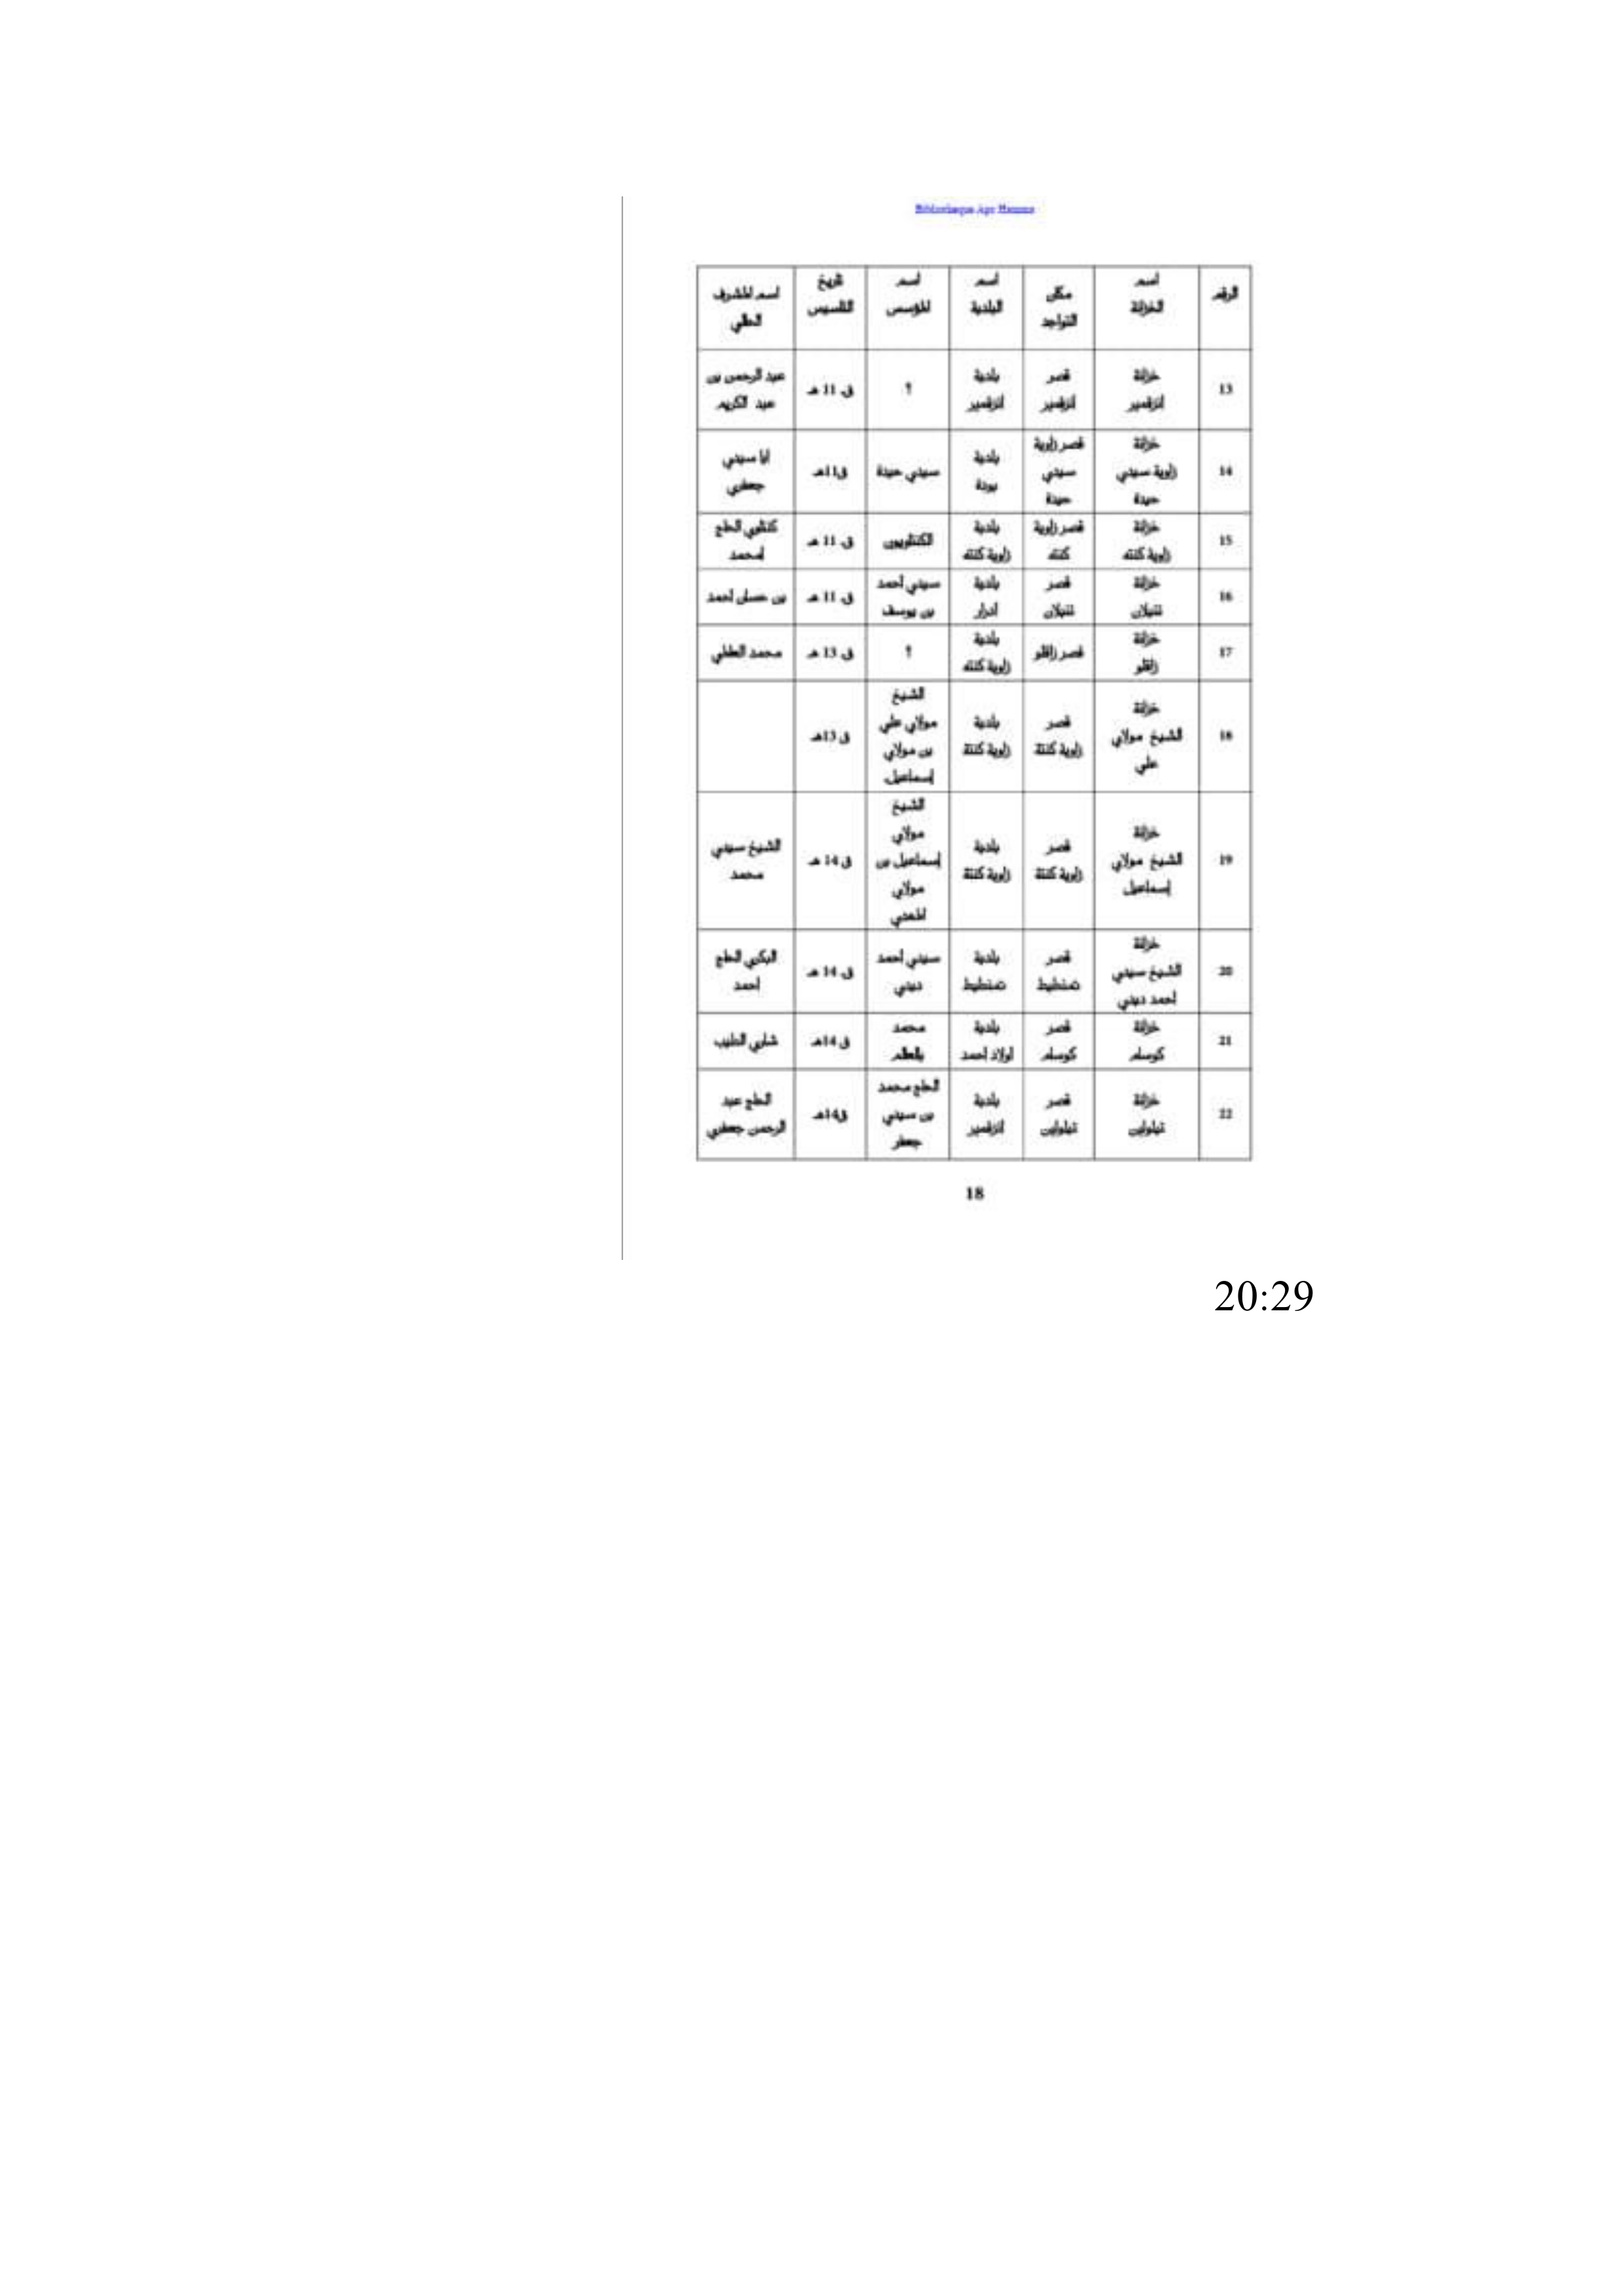 الرقم
اسم
الخزانة
مكان
التواجد
اسم
البلدية
اسم
المؤسس
تاريخ
التأسيس
اسم المشرف
الحالي
13
خزانة
أنزقمير
قصر
أنزقمير
بلدية
أنزقمير
؟
ق 11 هـ
عبد الرحمن بن
عبد الكريم
14
خزانة
زاوية سيدي
حيدة
قصر زاوية
سيدي
حيدة
بلدية
بودة
سيدي حيدة
ق11هـ
ابا سيدي
جعفري
15
خزانة
زاوية كنته
قصر زاوية
كنته
بلدية
زاوية كنته
الكنتاويون
ق 11 هـ
كنتاوي الحاج
أمحمد
16
خزانة
تنيلان
قصر
تنيلان
بلدية
أدرار
سيدي أحمد
بن يوسف
ق 11 هـ
بن حسان أحمد
17
خزانة
زاقلو
قصر زاقلو
بلدية
زاوية كنته
؟
ق 13 هـ
محمد
18
خزانة
الشيخ مولاي
علي
قصر
زاوية كنتة
بلدية
زاوية كنتة
الشيخ
مولاي علي
بن مولاي
إسماعيل
ق 13هـ
19
خزانة
الشيخ مولاي
إسماعيل
قصر
زاوية كنتة
بلدية
زاوية كنتة
الشيخ
مولاي
إسماعيل بن
مولاي
ق 14 هـ
الشيخ سيدي
محمد
20
خزانة
الشيخ سيدي
أحمد ديدي
قصر
تمنطيط
بلدية
تمنطيط
سيدي أحمد
ديدي
ق 14 هـ
البكري الحاج
أحمد
21
خزانة
كوسام
قصر
كوسام
بلدية
اولاد احمد
محمد
بالعالم
ق 14هـ
شاري الطيب
22
خزانة
تيلولين
قصر
تيلولين
بلدية
أنزقمير
الحاج محمد
بن سيدي
جعفر
ق14هـ
الحاج عبد
الرحمن جعفري
18
20:29